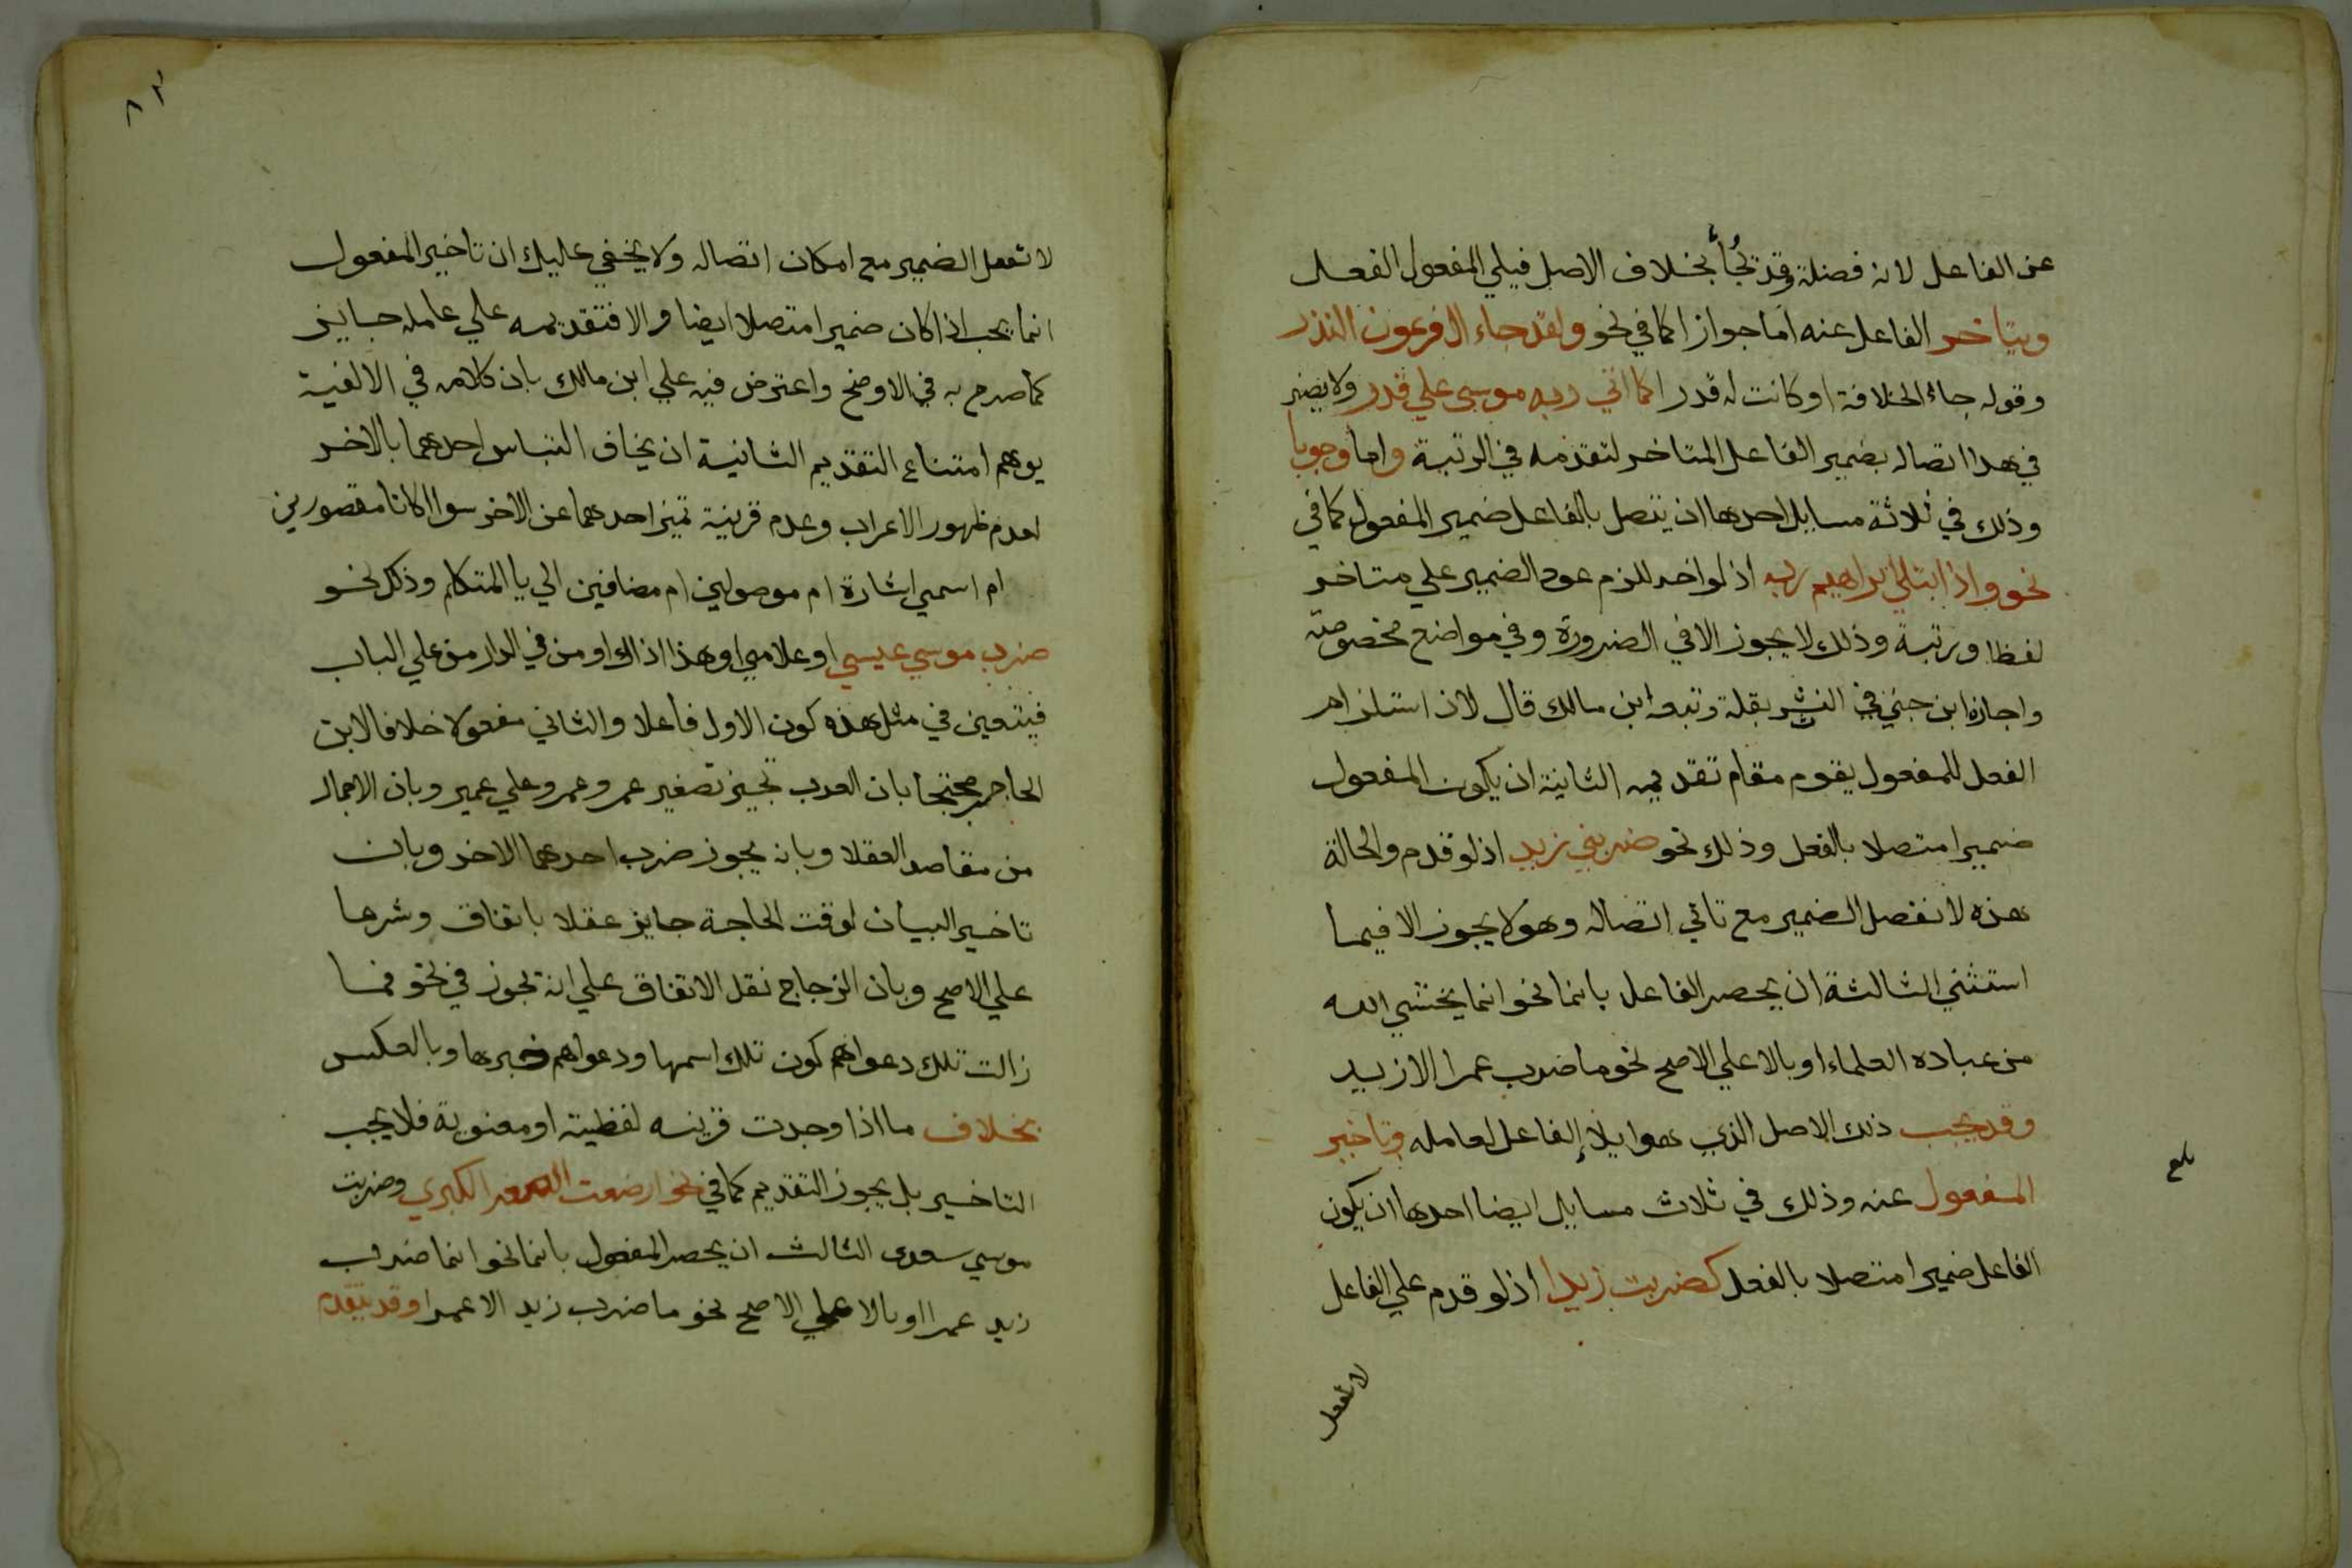 عن الفاعل لانه فضلة وقد يجأ بخلاف الاصل فيلي المفعول الفعل
ويتاخر الفاعل عنه اما جوازا كما في نحو ولقد جاء ال فرعون النذر
وقوله جاء الخلافة او كانت له قدرا كما اتي ربه موسي علي قدر ولا يضر
في هدا اتصاله بضمير الفاعل المتاخر لتقدمه في الرتبة واما وجوبا
وذلك في ثلاثة مسايل احدها ان يتصل بالفاعل ضمير المفعول كما في
نحو واذ ابتلي ابراهيم ربه اذ لو اخر للزم عود الضمير علي متاخر
لفظا ورتبة وذلك لا يجوز الا في الضرورة وفي مواضع مخصوصة
واجازه ابن جني في النثر بقلة وتبعه ابن مالك قال لان استلزام
الفعل للمفعول يقوم مقام تقديمه الثانية ان يكون المفعول
ضميرا متصلا بالفعل وذلك نحو ضربني زيد اذ لو قدم والحالة
هذه لانفصل الضمير مع تاتي اتصاله وهو لا يجوز الا فيما
استثني الثالثة ان يحصر الفاعل بانما نحو انما يخشي الله
من عباده العلماء او بالا علي الاصح نحو ما ضرب عمرا الا زيد
وقد يجب ذلك الاصل الذي هو ايلا الفاعل لعامله وتاخير
المفعول عنه وذلك في ثلاث مسايل ايضا احدها ان يكون
الفاعل ضميرا متصلا بالفعل كضربت زيدا اذ لو قدم علي الفاعل
لانفصل
بلغ
٨٢
لانفصل الضمير مع امكان اتصاله ولا يخفي عليك ان تاخير المفعول
انما يجب اذا كان ضميرا متصلا ايضا والا فتقديمه علي عامله جايز
كما صرح به في الاوضح واعترض فيه علي ابن مالك بان كلامه في الالفية
يوهم امتناع التقديم الثانية ان يخاف التباس احدهما بالاخر
لعدم ظهور الاعراب وعدم قرينة تميز احدهما عن الاخر سوا اكانا مقصورين
ام اسمي اشارة ام موصولين ام مضافين الي يا المتكلم وذلك نحو
ضرب موسي عيسي او غلامي او هذا اذاك او من في الدار من علي الباب
فيتعين في مثل هذه كون الاول فاعلا والثاني مفعولا خلافا لابن
الحاجب محتجا بان العرب تجيز تصغير عمر وعمرو علي عمير وبان الاجمال
من مقاصد العقلا وبانه يجوز ضرب احدهما الاخر وبان
تاخير البيان لوقت الحاجة جايز عقلا باتفاق وشرعا
علي الاصح وبان الزجاج نقل الاتفاق علي انه تجوز في نحو فما
زالت تلك دعواهم كون تلك اسمها ودعواهم خبرها وبالعكس
بخلاف ما اذا وجدت قرينه لفظية او معنوية فلا يجب
التاخير بل يجوز التقديم كما في نحو ارضعت الصغرا الكبري وضربت
موسي سعدي الثالث ان يحصر المفعول بانما نحو انما ضرب
زيد عمرا او بالا علي الاصح نحو ما ضرب زيد الا عمرا وقد يتقدم